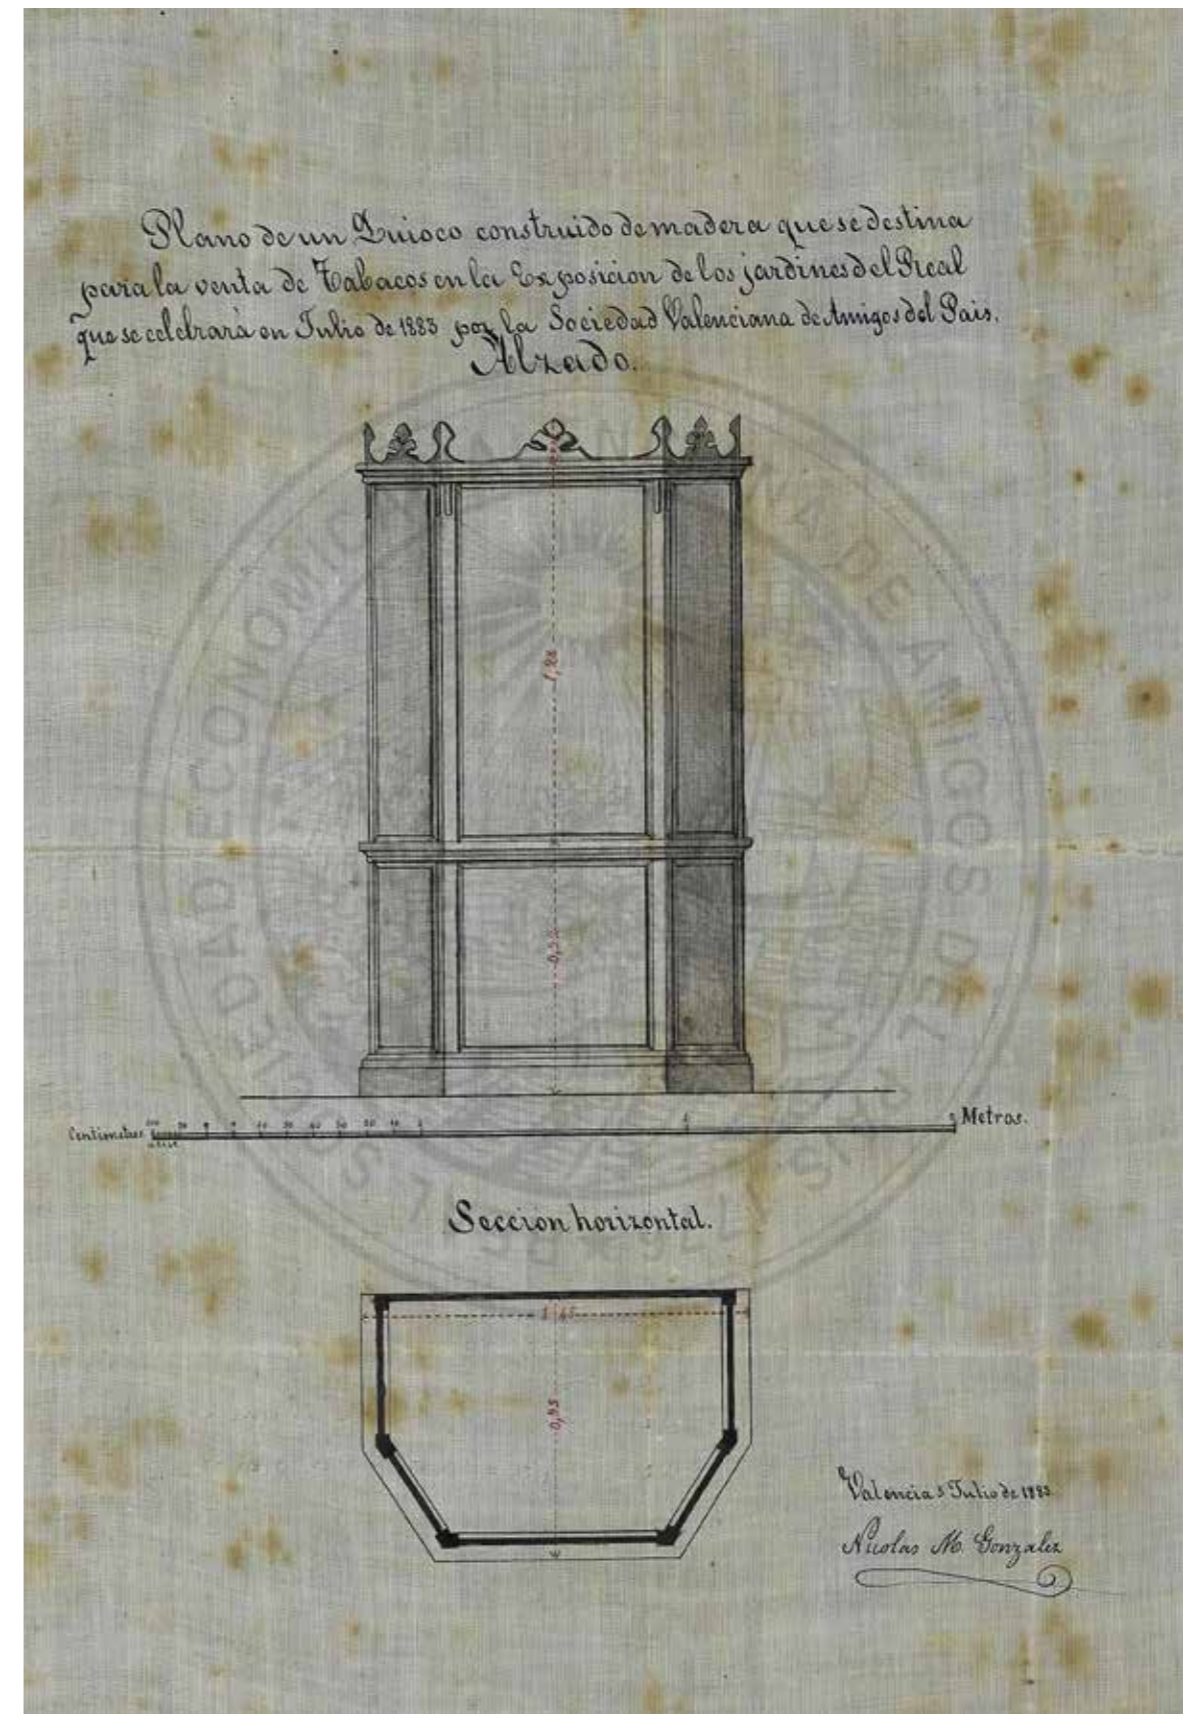 Plano de un Quioco construido de madera que se destina
para la venta de Tabacos en la Exposicion de los jardines del Real
que se celebrará en Julio de 1883 por la Sociedad Valenciana de Amigos del Pais.
Alzado.
1,28
0,92
Centimetros
Metros.
Seccion horizontal.
1,45
0,95
Valencia 5 Julio de 1883
Nicolas M. Gonzalez
SOCIEDAD ECONOMICA VALENCIANA DE AMIGOS DEL PAIS 1776